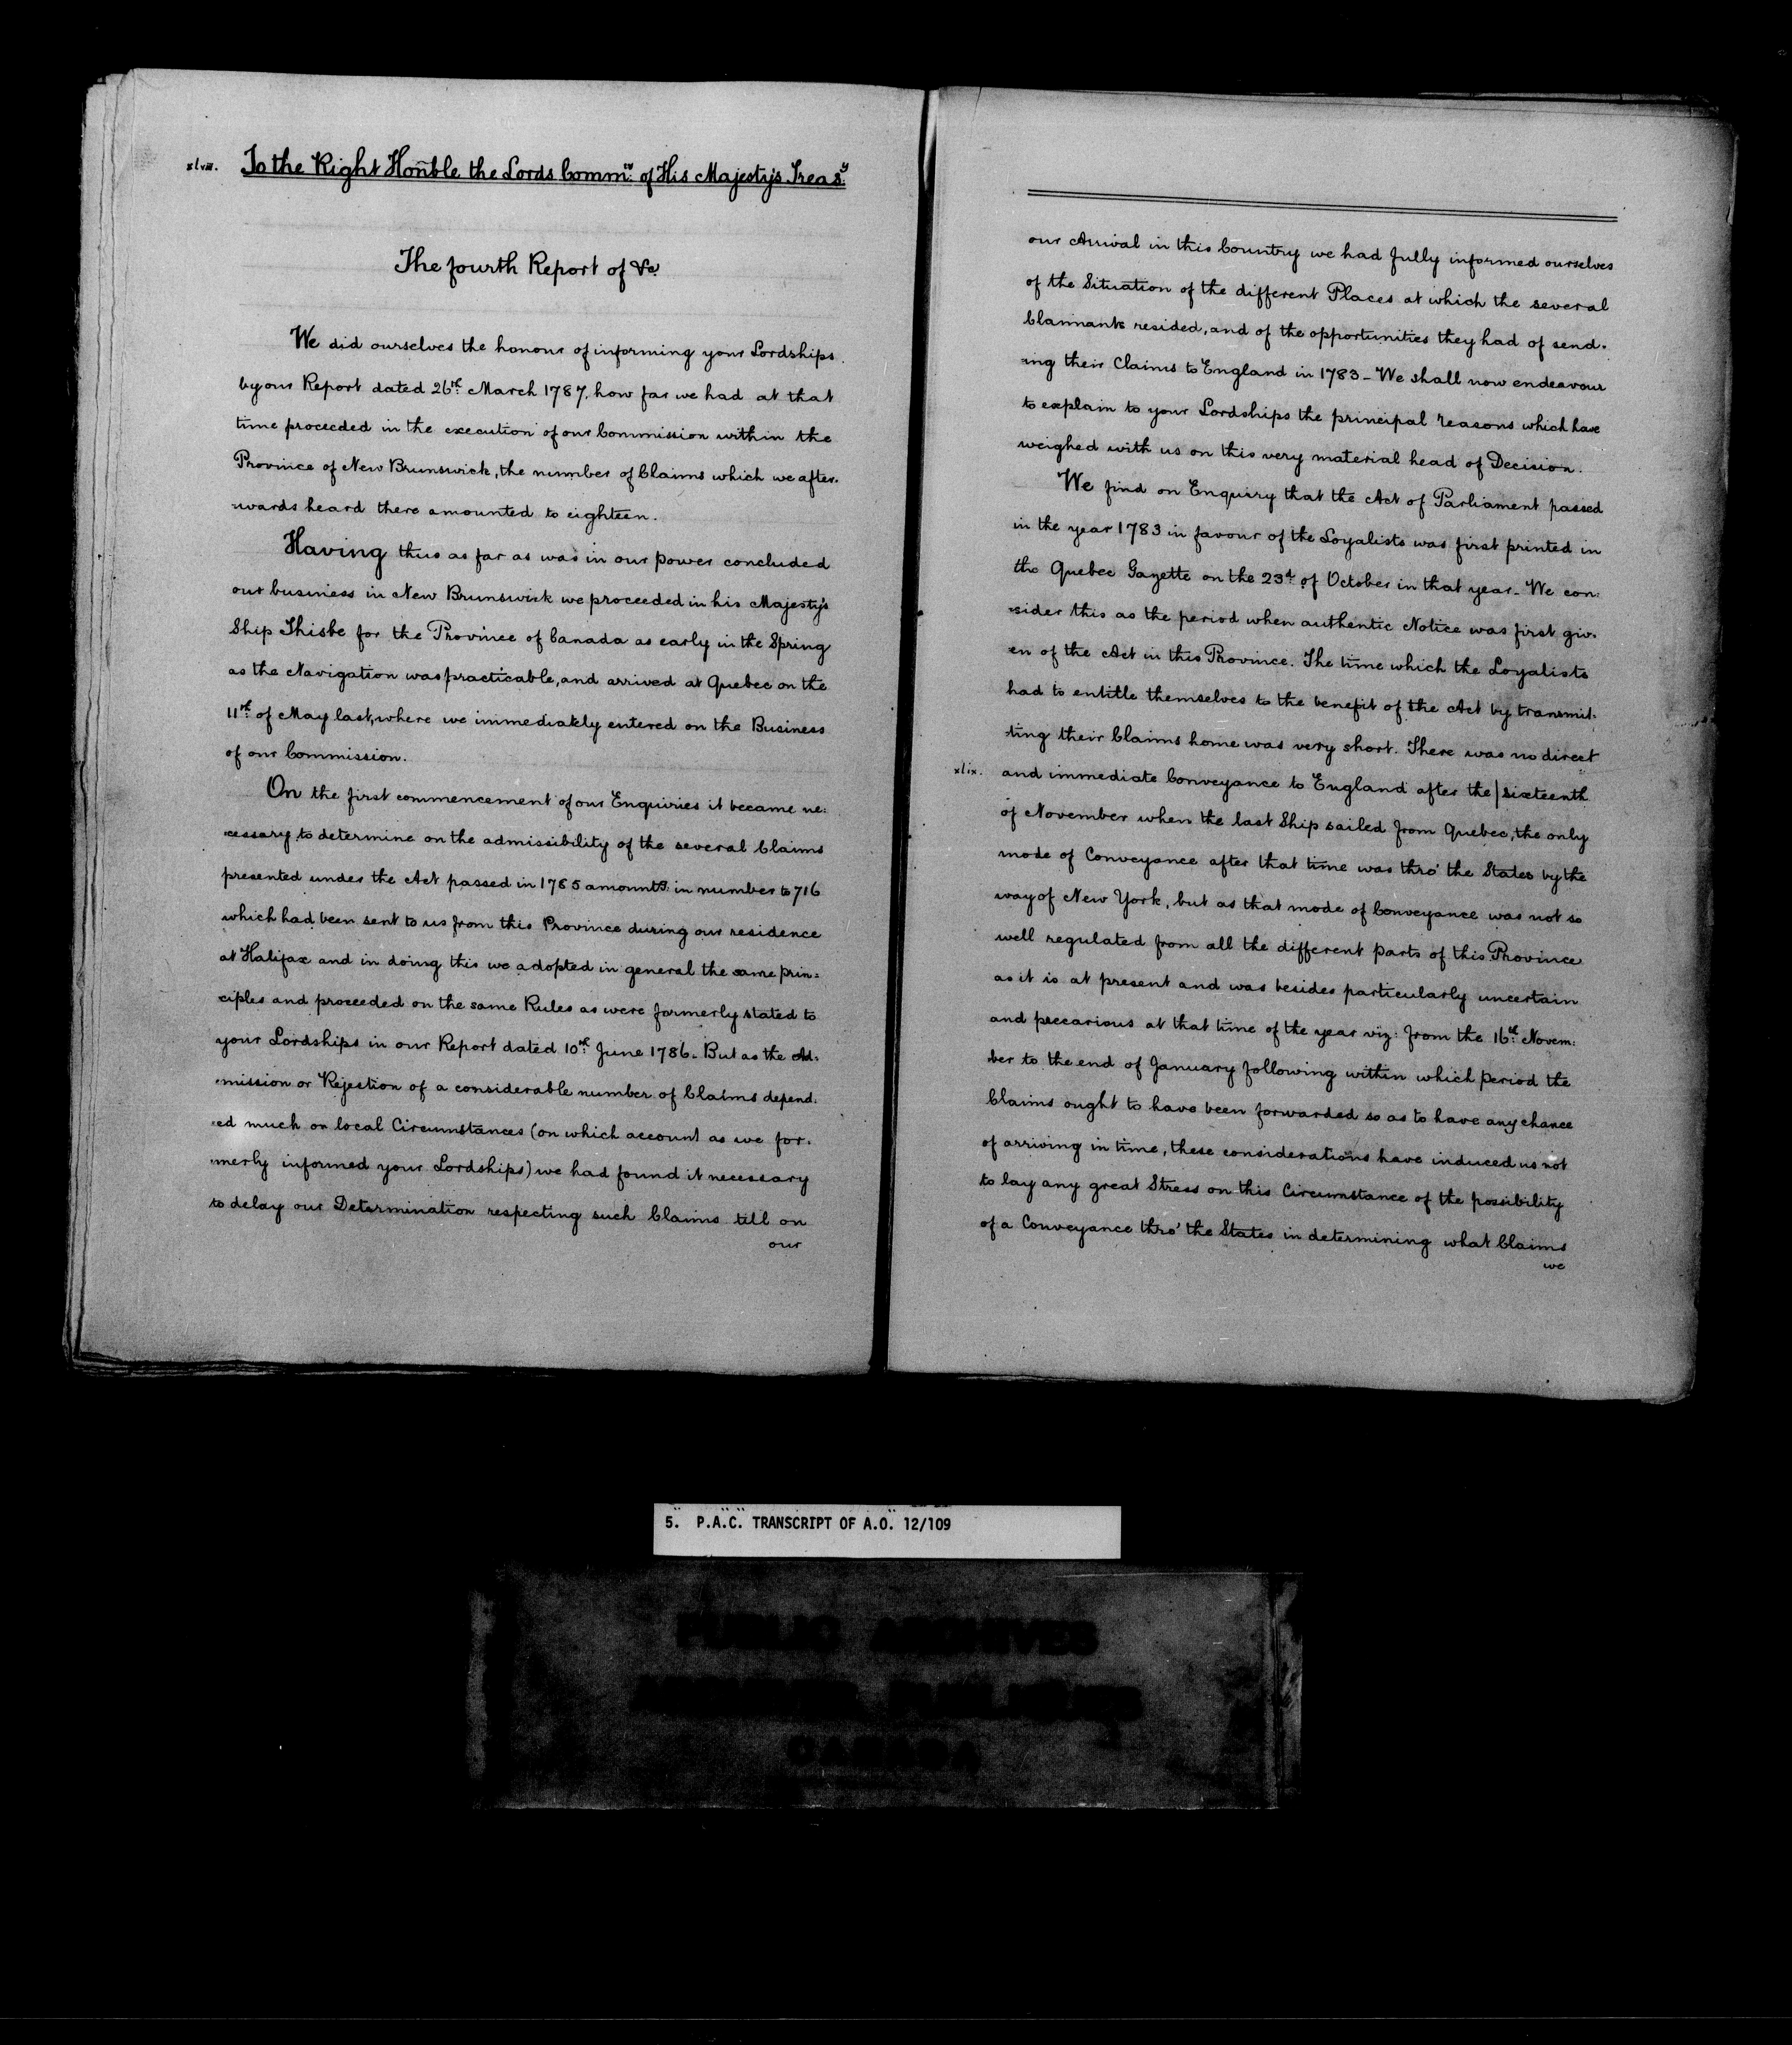 xlviii. To the Right Honble the Lords Commrs. of His Majesty's Treasy.
The fourth Report of &c.
We did ourselves the honour of informing your Lordships
by our Report dated 26th. March 1787. how far we had at that
time proceeded in the execution of our Commission within the
Province of New Brunswick, the number of Claims which we after-
-wards heard there amounted to eighteen.
Having thus as far as was in our power concluded
our business in New Brunswick we proceeded in his Majesty's
Ship Thisbe for the Province of Canada as early in the Spring
as the Navigation was practicable, and arrived at Quebec on the
11th. of May last, where we immediately entered on the Business
of our Commission.
On the first commencement of our Enquiries it became ne:
-cessary to determine on the admissibility of the several Claims
presented under the Act passed in 1785 amountg. in number to 716
which had been sent to us from this Province during our residence
at Halifax and in doing this we adopted in general the same prin=
-ciples and proceeded on the same Rules as were formerly stated to
your Lordships in our Report dated 10th. June 1786. But as the Ad:
-mission or Rejestion of a considerable number of Claims depend.
-ed much on local Circumstances (on which account as we for.
-merly informed your Lordships) we had found it necessary
to delay our Determination respecting such Claims till on
our
our Arrival in this Country we had fully informed ourselves
of the Situation of the different Places at which the several
Claimants resided, and of the opportunities they had of send.
-ing their Claims to England in 1783 - We shall now endeavour
to explain to your Lordships the principal reasons which have
weighed with us on this very material head of Decision.
We find on Enquiry that the Act of Parliament passed
in the year 1783 in favour of the Loyalists was first printed in
the Quebec Gazette on the 23d. of October in that year - We con:
-sider this as the period when authentic Notice was first giv-
-en of the Act in this Province. The time which the Loyalists
had to entitle themselves to the benefit of the Act by transmit:
-ting their Claims home was very short. There was no direct
xlix. and immediate Conveyance to England after the | sixteenth
of November when the last Ship sailed from Quebec, the only
mode of Conveyance after that time was thro' the States by the
way of New York, but as that mode of Conveyance was not so
well regulated from all the different parts of this Province
as it is at present and was besides particularly uncertain
and precarious at that time of the year viz: from the 16th. Novem:
-ber to the end of January following within which period the
Claims ought to have been forwarded so as to have any chance
of arriving in time, these considerations have induced us not
to lay any great Stress on this Circumstance of the possibility
of a Conveyance thro' the States in determining what Claims
we
5. P.A.C. TRANSCRIPT OF A.O. 12/109
PUBLIC ARCHIVES
ARCHIVES PUBLIQUES
CANADA